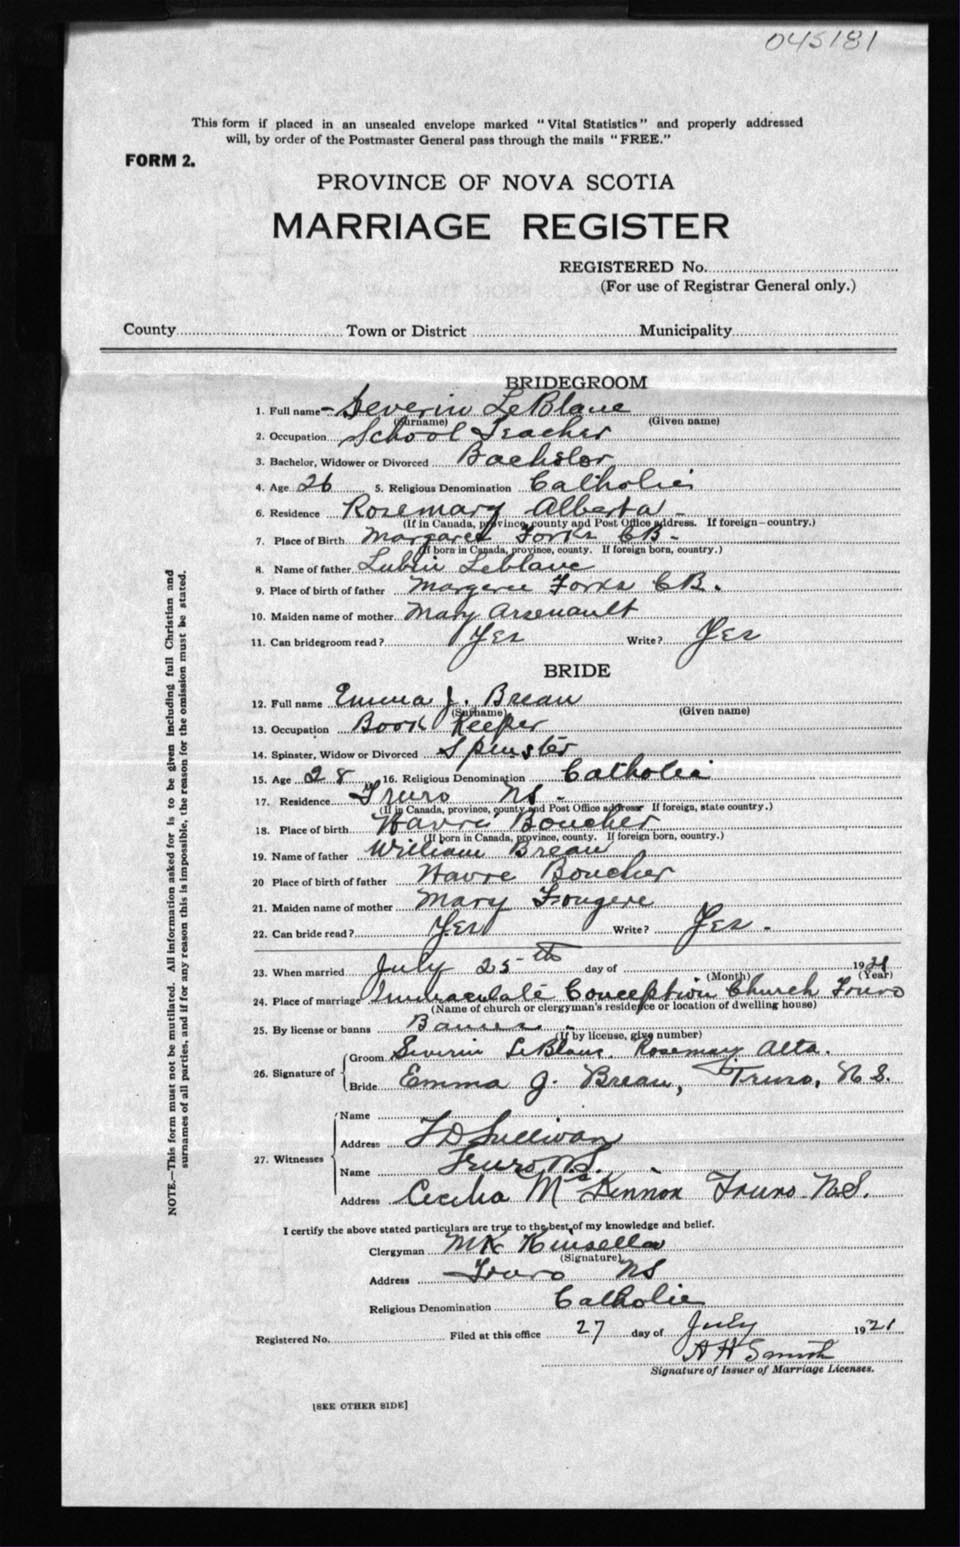 045181
This form if placed in an unsealed envelope marked "Vital Statistics" and properly addressed
will, by order of the Postmaster General pass through the mails "FREE."
FORM 2.
PROVINCE OF NOVA SCOTIA
MARRIAGE REGISTER
REGISTERED No.
(For use of Registrar General only.)
County Town or District Municipality
BRIDEGROOM
1. Full name - Severin LeBlanc
(Surname) (Given name)
2. Occupation School Teacher
3. Bachelor, Widower or Divorced Bachelor
4. Age 26 5. Religious Denomination Catholic
6. Residence Rosemary Alberta -
(If in Canada, province, county and Post Office address. If foreign—country.)
7. Place of Birth Margaree Forks CB -
(If born in Canada, province, county. If foreign born, country.)
8. Name of father Lubin Leblanc
9. Place of birth of father Margaree Forks CB.
10. Maiden name of mother Mary Arsenault
11. Can bridegroom read? Yes Write? Yes
BRIDE
12. Full name Emma J. Breau
(Surname) (Given name)
13. Occupation Book Keeper
14. Spinster, Widow or Divorced Spinster
15. Age 28 16. Religious Denomination Catholic
17. Residence Truro NS -
(If in Canada, province, county and Post Office address If foreign, state country.)
18. Place of birth Havre Boucher
(If born in Canada, province, county. If foreign born, country.)
19. Name of father William Breau
20 Place of birth of father Havre Boucher
21. Maiden name of mother Mary Fougere
22. Can bride read? Yes Write? Yes -
23. When married July 25th day of 1921
(Month) (Year)
24. Place of marriage Immaculate Conception Church Truro
(Name of church or clergyman's residence or location of dwelling house)
25. By license or banns Banns
(If by license, give number)
26. Signature of Groom Severin LeBlanc Rosemary Alta.
Bride Emma J. Breau, Truro, N S.
27. Witnesses Name
Address F D Sullivan
Name Truro NS.
Address Cecilia McKinnon Truro N.S.
I certify the above stated particulars are true to the best of my knowledge and belief.
Clergyman Kinsella
(Signature)
Address Truro NS
Religious Denomination Catholic
Registered No. Filed at this office 27 day of July 1921
A H Smith
Signature of Issuer of Marriage Licenses.
[SEE OTHER SIDE]
NOTE.—This form must not be mutilated. All information asked for is to be given including full Christian and
surnames of all parties, and if for any reason this is impossible, the reason for the omission must be stated.